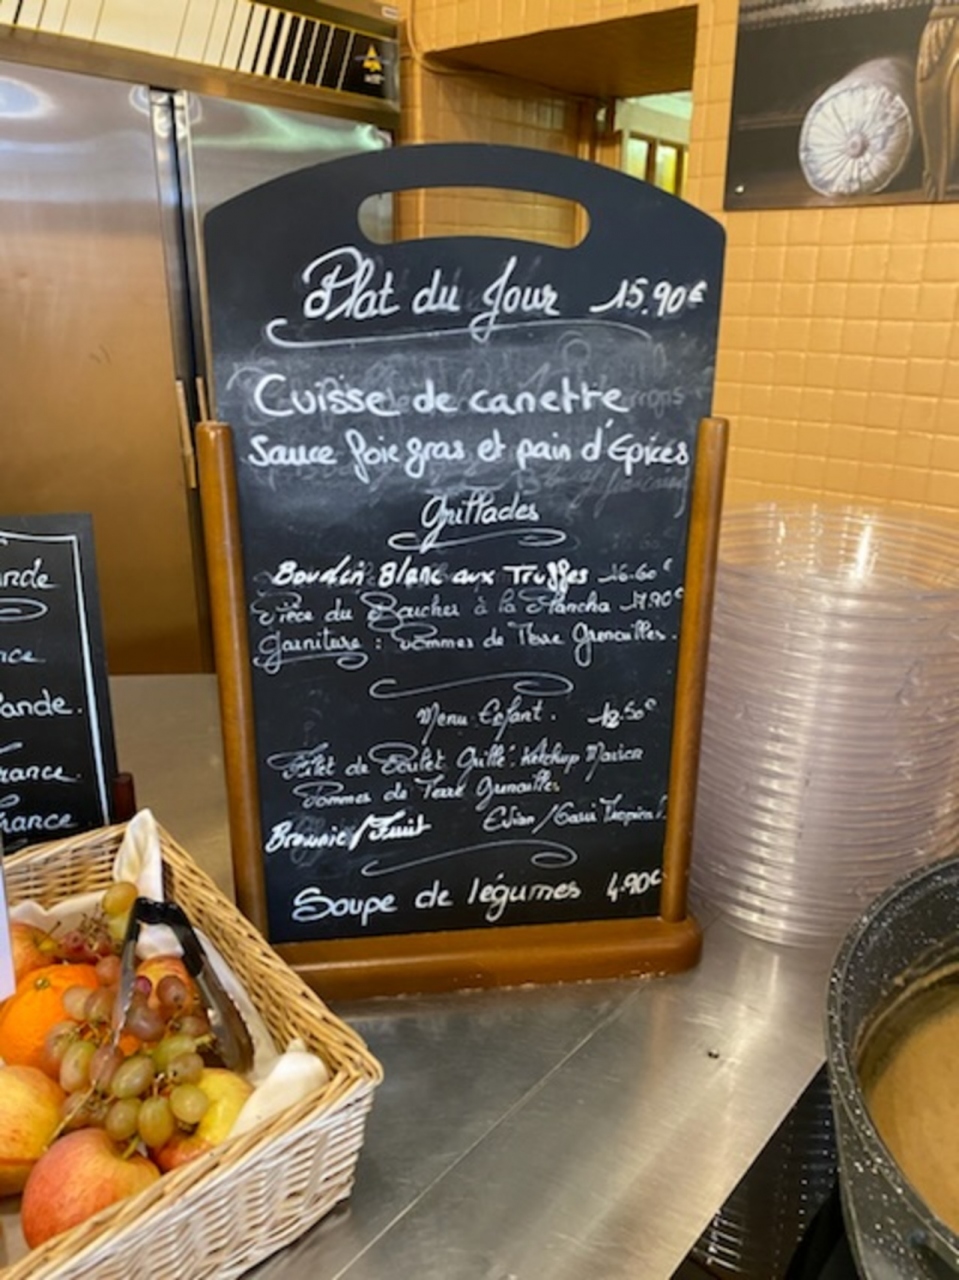 Plat du Jour 15.90€
Cuisse de canette
Sauce foie gras et pain d'épices
Grillades
Boudin Blanc aux Truffes 16.60€
Pièce du Boucher à la Plancha 17.90€
Garniture : Pommes de Terre Grenailles.
Menu Enfant. .50€
Filet de Poulet Grillé. Ketchup Maison
Pommes de Terre Grenailles
Brownie/Fruit Evian / Tropical
Soupe de légumes 4.90€
ande.
rance.
france